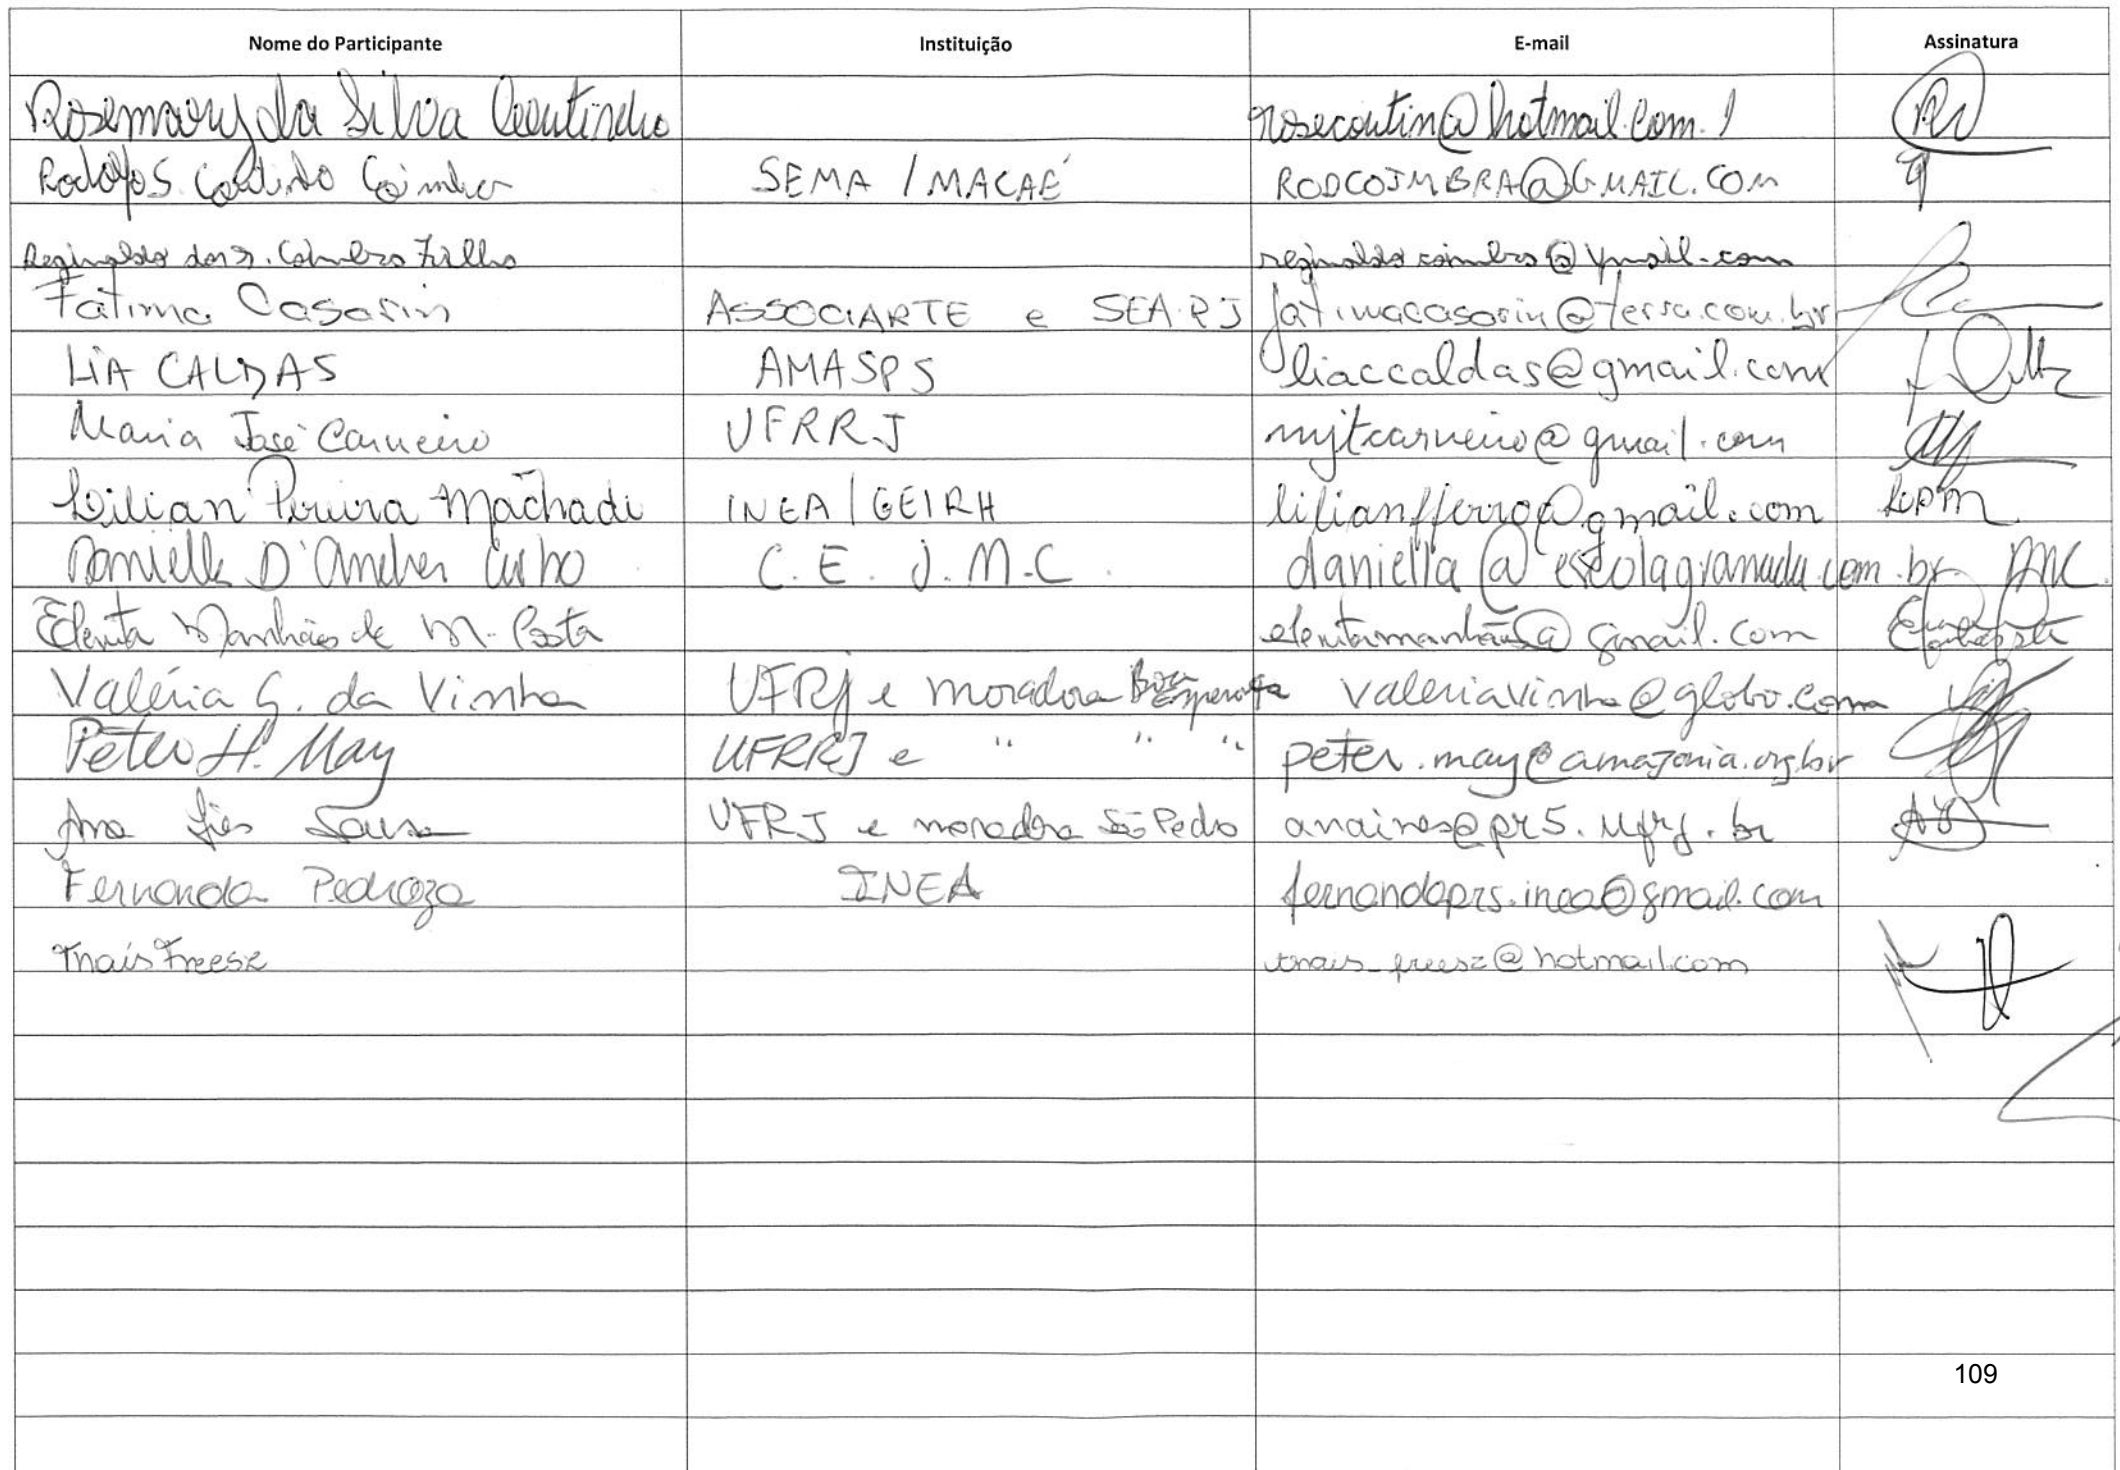 Nome do Participante Instituição E-mail Assinatura
Rosemary da Silva Coutinho rosecoutin@hotmail.com
Rodolfo S. Coutinho Coimbra SEMA / MACAÉ RODCOIMBRA@GMAIL.COM
Reginaldo dos S. Coimbra Filho reginaldo coimbra@ymail.com
Fatima Casarin ASSOCIARTE e SEA.RJ fatimacasarin@terra.com.br
LIA CALDAS AMASPS liaccaldas@gmail.com
Maria José Carneiro UFRRJ mjtcarneiro@gmail.com
Lilian Pereira Machado INEA / GEIRH @gmail.com LPM
D'Andrea C. E. J. M.C. daniella@escolagranada.com.br DAC
Elenita Manhães de M. Costa elenitamanhães@gmail.com
Valéria G. da Vinha UFRJ e moradora Boa Esperança valeriavinha@globo.com
Peter H. May UFRRJ e " " " peter.may@amazonia.org.br
Ana Inês Sousa UFRJ e moradora São Pedro anaines@pr5.ufrj.br
Fernanda Pedroza INEA fernandaprs.inea@gmail.com
Thaís Freesz thais_freesz@hotmail.com
109